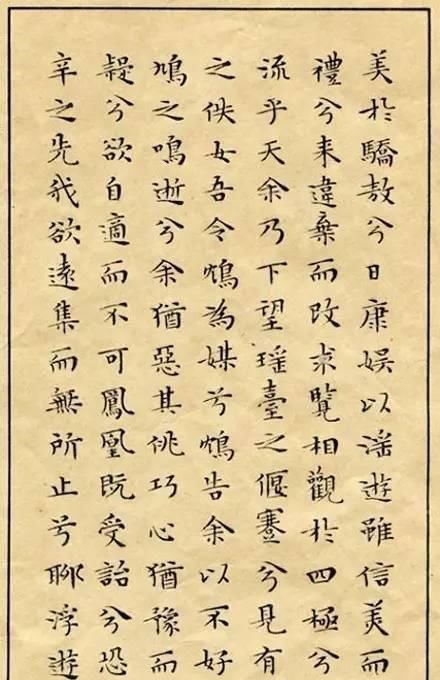 美於驕敖兮日康娛以滛遊雖信美而
禮兮来違棄而改求覽相觀於四極兮
流乎天余乃下望瑶臺之偃蹇兮見有
之佚女吾令鴆為媒兮鴆告余以不好
鳩之鳴逝兮余猶惡其佻巧心猶豫而
疑兮欲自適而不可鳳凰既受詒兮恐
辛之先我欲遠集而無所止兮聊浮遊